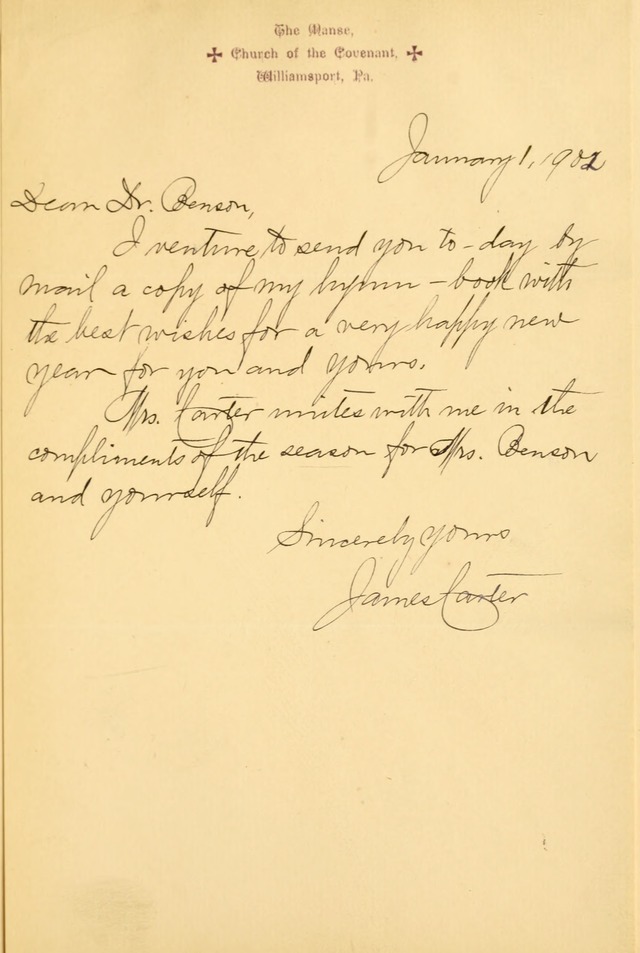 The Manse,
Church of the Covenant,
Williamsport, Pa.
January 1, 1902
Dear Dr. Benson,
I venture to send you to-day by
mail a copy of my hymn-book with
the best wishes for a very happy new
year for you and yours.
Mrs. Carter unites with me in the
compliments of the season for Mrs. Benson
and yourself.
Sincerely yours
James Carter